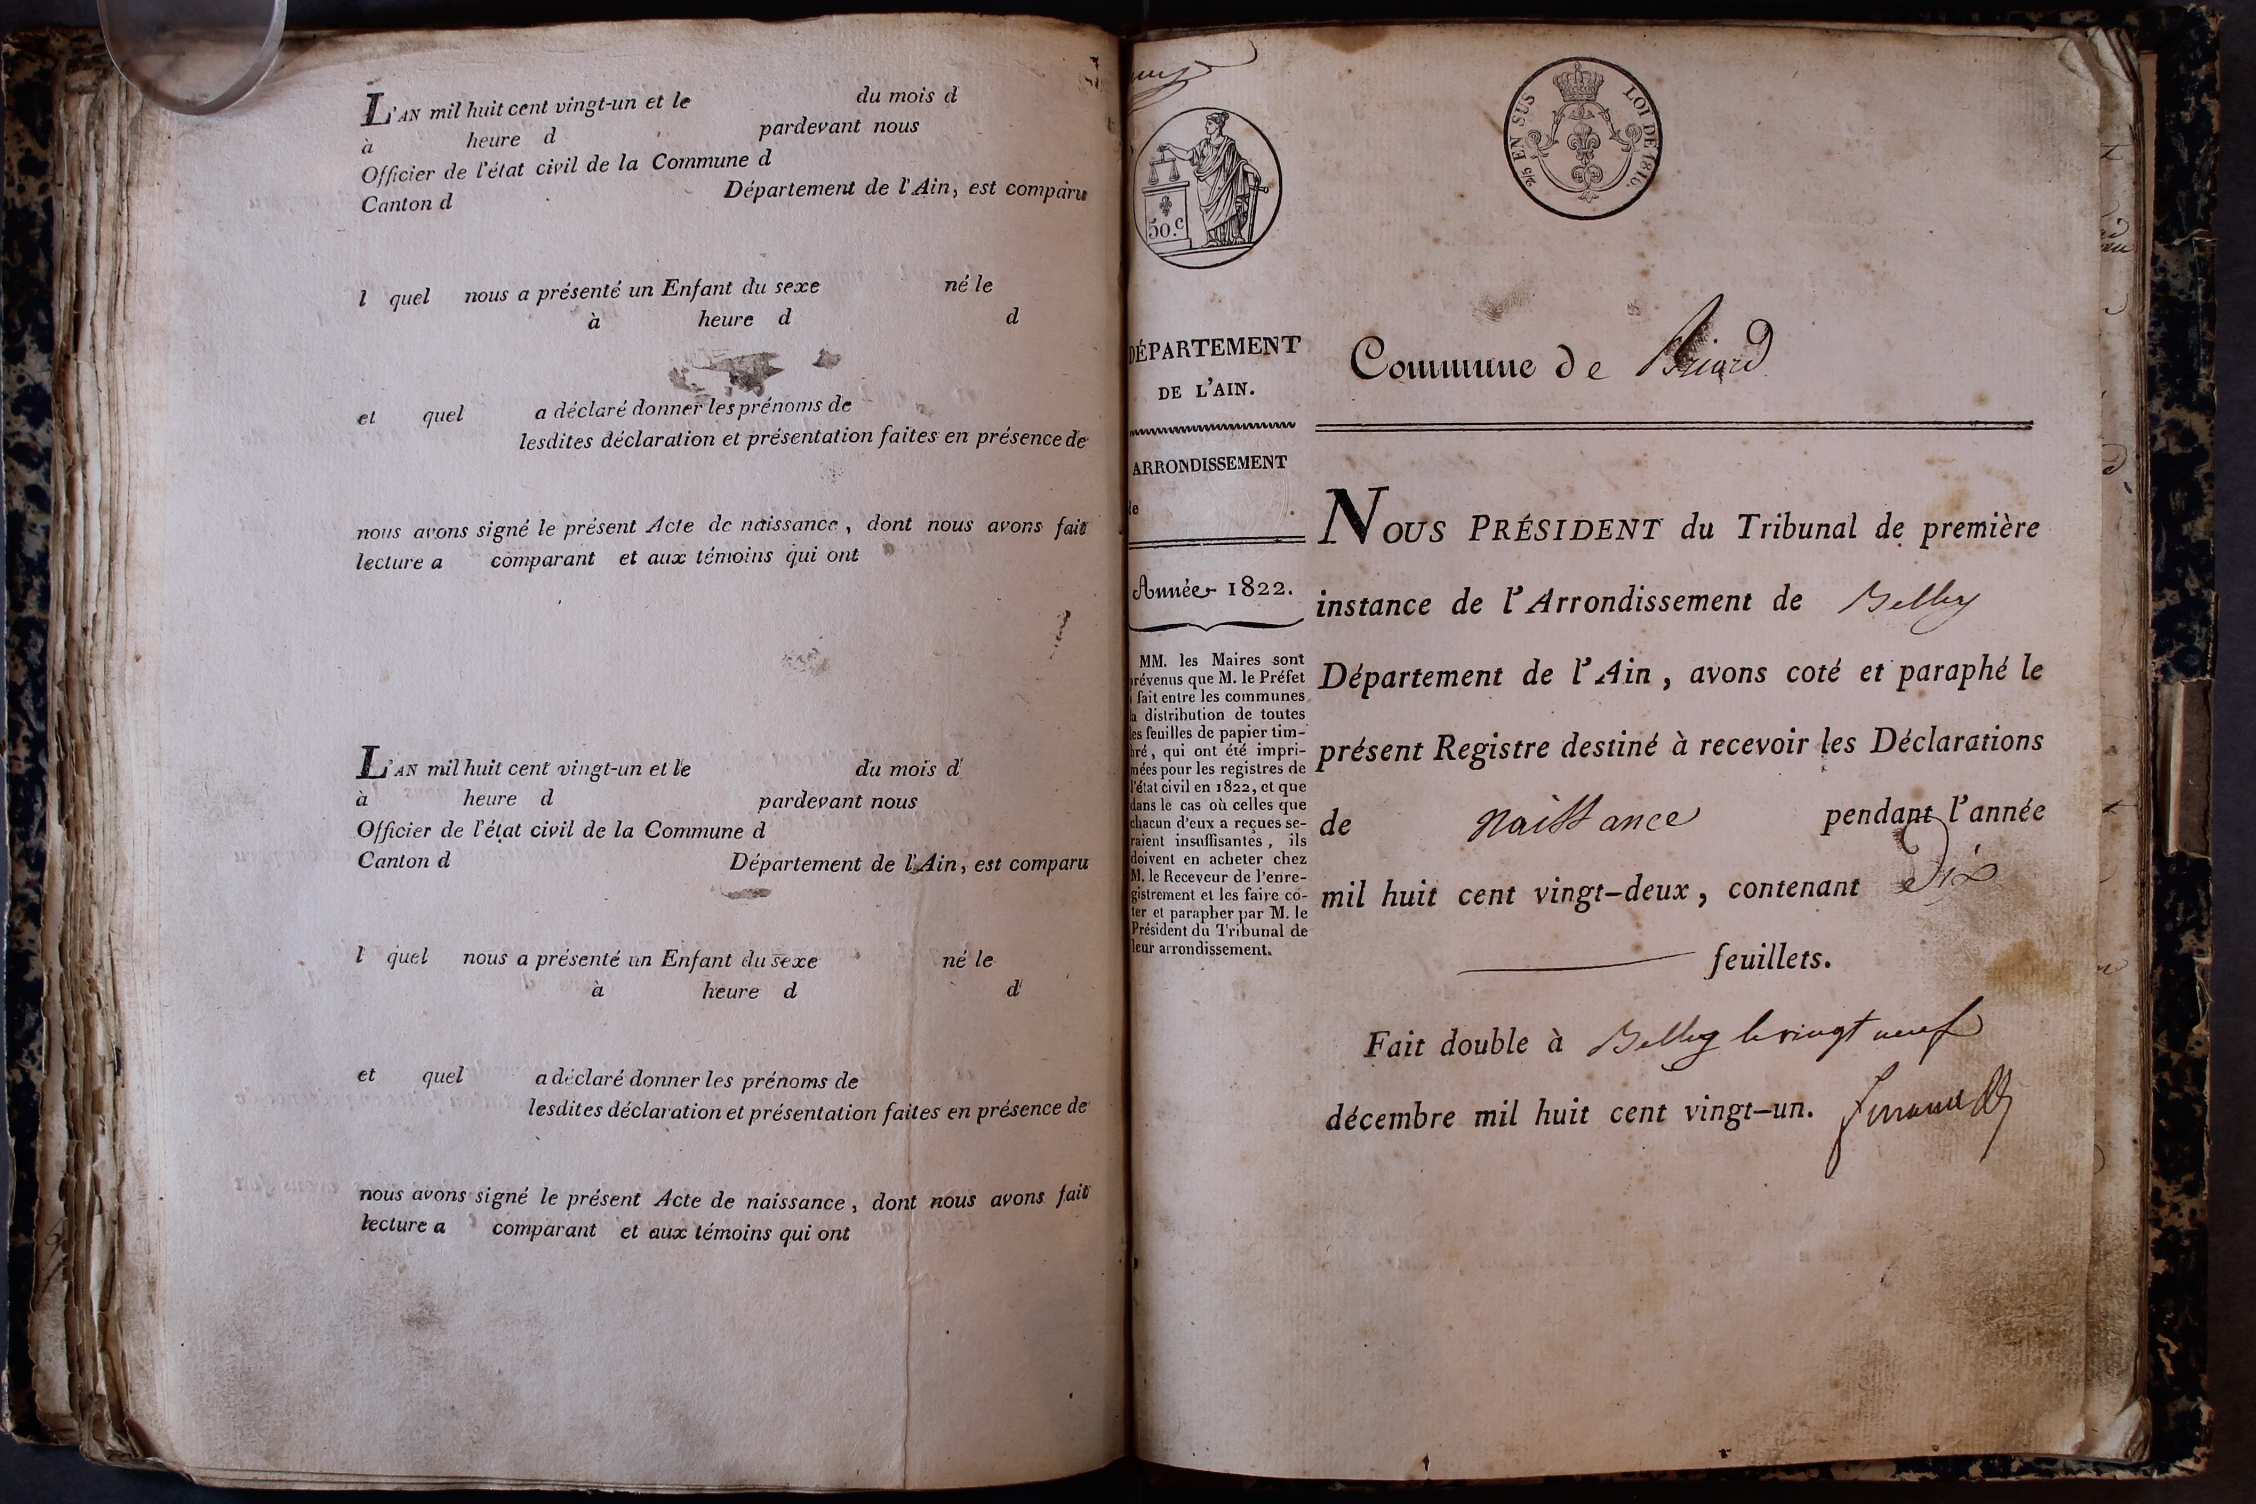 L'AN mil huit cent vingt-un et le du mois d
à heure d pardevant nous
Officier de l'état civil de la Commune d
Canton d Département de l'Ain, est comparu
l quel nous a présenté un Enfant du sexe né le
à heure d d
et quel a déclaré donner les prénoms de
lesdites déclaration et présentation faites en présence de
nous avons signé le présent Acte de naissance, dont nous avons fait
lecture a comparant et aux témoins qui ont
L'AN mil huit cent vingt-un et le du mois d
à heure d pardevant nous
Officier de l'état civil de la Commune d
Canton d Département de l'Ain, est comparu
l quel nous a présenté un Enfant du sexe né le
à heure d d
et quel a déclaré donner les prénoms de
lesdites déclaration et présentation faites en présence de
nous avons signé le présent Acte de naissance, dont nous avons fait
lecture a comparant et aux témoins qui ont
50.c
2/5 EN SUS LOI DE 1816.
DÉPARTEMENT
DE L'AIN.
ARRONDISSEMENT
de
Année 1822.
MM. les Maires sont
prévenus que M. le Préfet
a fait entre les communes
la distribution de toutes
les feuilles de papier tim-
bré, qui ont été impri-
mées pour les registres de
l'état civil en 1822, et que
dans le cas où celles que
chacun d'eux a reçues se-
raient insuffisantes, ils
doivent en acheter chez
M. le Receveur de l'enre-
gistrement et les faire co-
ter et parapher par M. le
Président du Tribunal de
leur arrondissement.
Commune de Briord
NOUS PRÉSIDENT du Tribunal de première
instance de l'Arrondissement de Belley
Département de l'Ain, avons coté et paraphé le
présent Registre destiné à recevoir les Déclarations
de naissance pendant l'année
mil huit cent vingt-deux, contenant dix
feuillets.
Fait double à Belley le vingt neuf
décembre mil huit cent vingt-un.